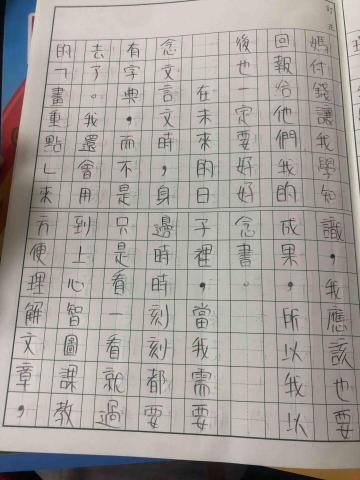 媽付錢讓我學知識，我應該也要
回報給他們我的成果，所以我以
後也一定要好好念書。
在未來的日子裡，當我需要
念文言文時，身邊時時刻刻都要
有字典，而不是只是看一看就過
去了。我還會用到上心智圖課教
的「畫重點」來方便理解文章，